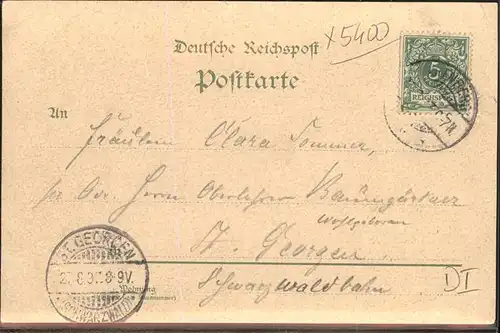 x5400
Deutsche Reichspost
Postkarte
5
REICHSPOST
An
Fräulein Clara Sommer,
per Adr. Herrn Oberlehrer Baumgartner
Wohlgeboren
St. Georgen
Schwarzwaldbahn
ST. GEORGEN
8-9V.
(SCHWARZWALD)
Wohnung
DI